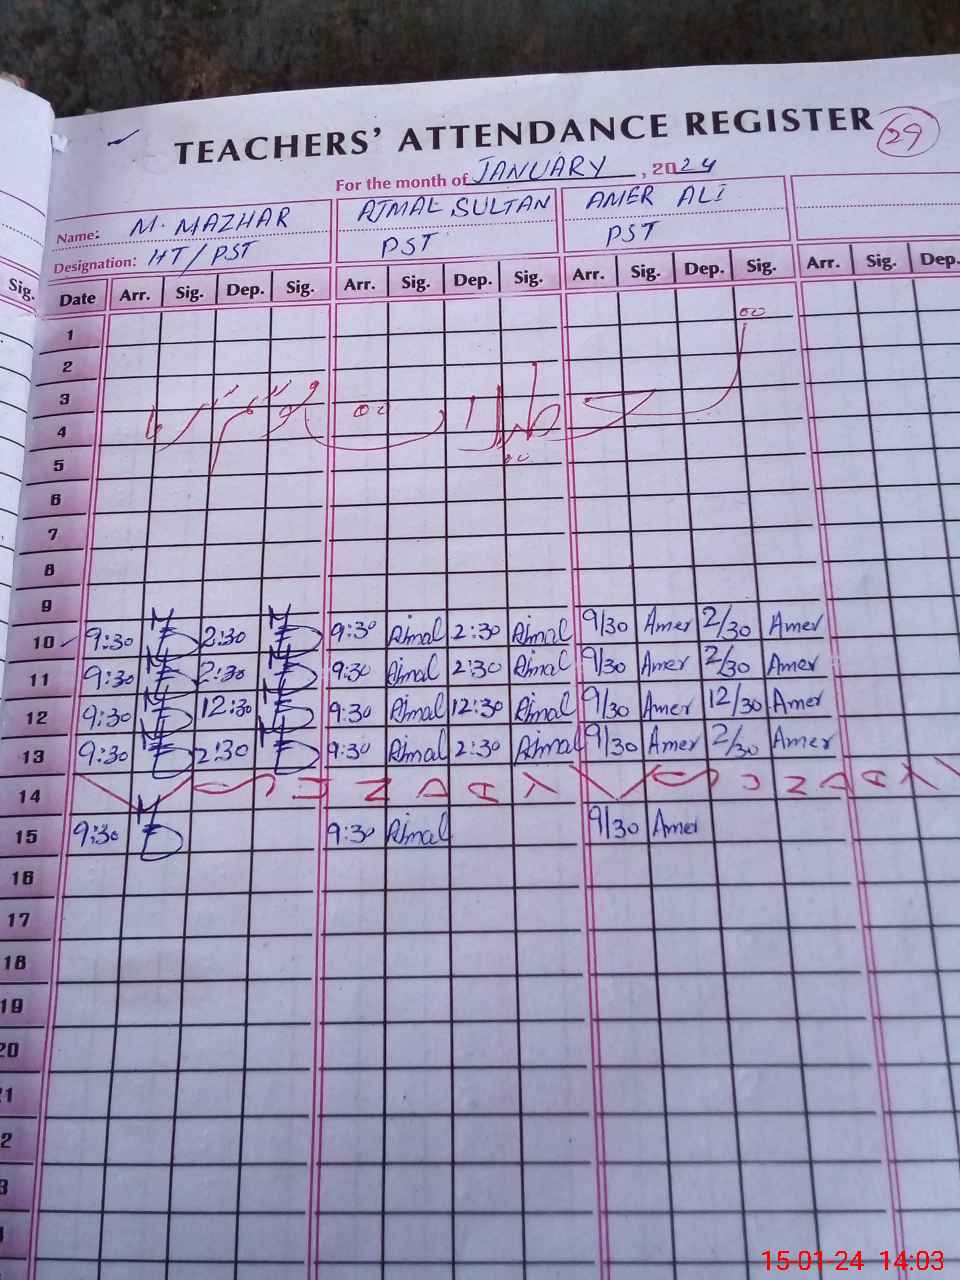 TEACHERS' ATTENDANCE REGISTER 29
For the month of JANUARY, 2024
Name: M. MAZHAR AJMAL SULTAN AMER ALI
Designation: HT/PST PST PST
Sig. Date Arr. Sig. Dep. Sig. Arr. Sig. Dep. Sig. Arr. Sig. Dep. Sig. Arr. Sig. Dep.
1
2
3
4
5
6
7
8
9
10 9:30 2:30 9:30 Ajmal 2:30 Ajmal 9/30 Amer 2/30 Amer
11 9:30 2:30 9:30 Ajmal 2:30 Ajmal 9/30 Amer 2/30 Amer
12 9:30 12:30 9:30 Ajmal 12:30 Ajmal 9/30 Amer 12/30 Amer
13 9:30 2:30 9:30 Ajmal 2:30 Ajmal 9/30 Amer 2/30 Amer
14 SUNDAY SUNDAY
15 9:30 9:30 Ajmal 9/30 Amer
16
17
18
19
20
1
2
3
15-01-24 14:03